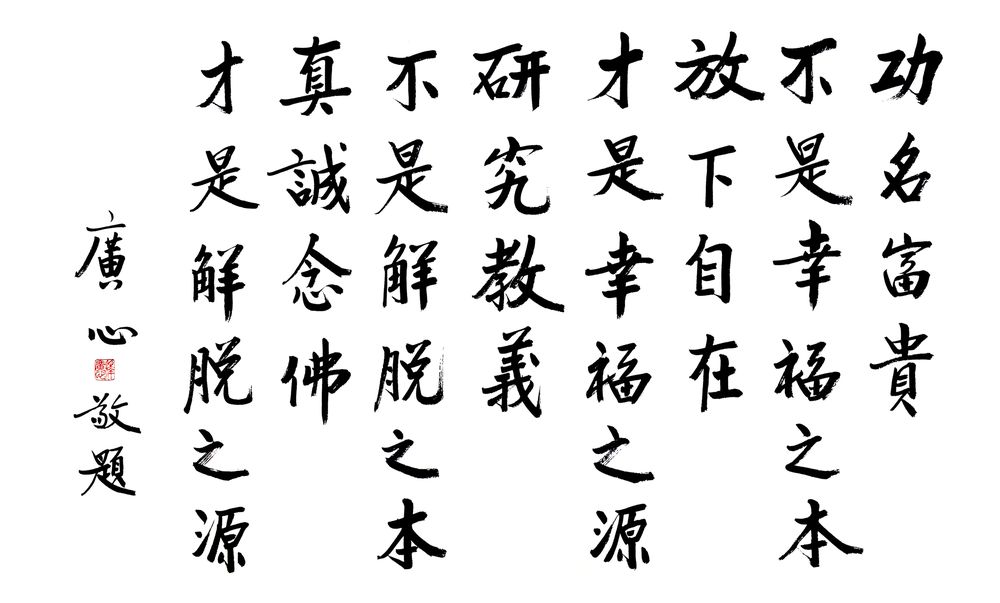 功名富貴
不是幸福之本
放下自在
才是幸福之源
研究教義
不是解脱之本
真誠念佛
才是解脱之源
廣心敬題